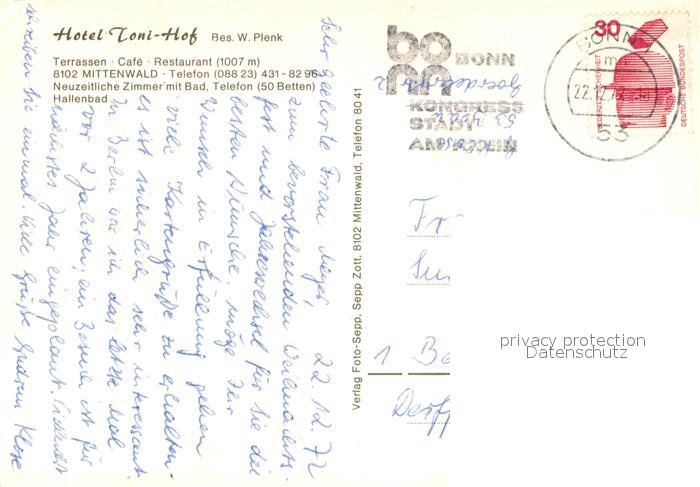 Hotel Toni-Hof Bes. W. Plenk
Terrassen · Café · Restaurant (1007 m)
8102 MITTENWALD · Telefon (088 23) 431 - 82 96
Neuzeitliche Zimmer mit Bad, Telefon (50 Betten)
Hallenbad
22.12.72
Sehr geehrte Frau
zum bevorstehenden Weihnachts-
fest und Jahreswechsel für Sie die
besten Wünsche. Möge Ihr
Wunsch in Erfüllung gehen
viele Kartengrüße zu erhalten.
es ist sicherlich sehr interessant.
In Berlin war ich das letzte Mal
vor 2 Jahren, ein Besuch ist für
nächstes Jahr eingeplant. Vielleicht
schreiben Sie einmal. Viele Grüße Gudrun Klose
Verlag Foto-Sepp, Sepp Zott, 8102 Mittenwald, Telefon 80 41
bonn
BONN
KONGRESS
STADT
AM RHEIN
53
BONN
22.12.72
53
30
JEDERZEIT SICHERHEIT
DEUTSCHE BUNDESPOST
Fr
1 Be
privacy protection
Datenschutz